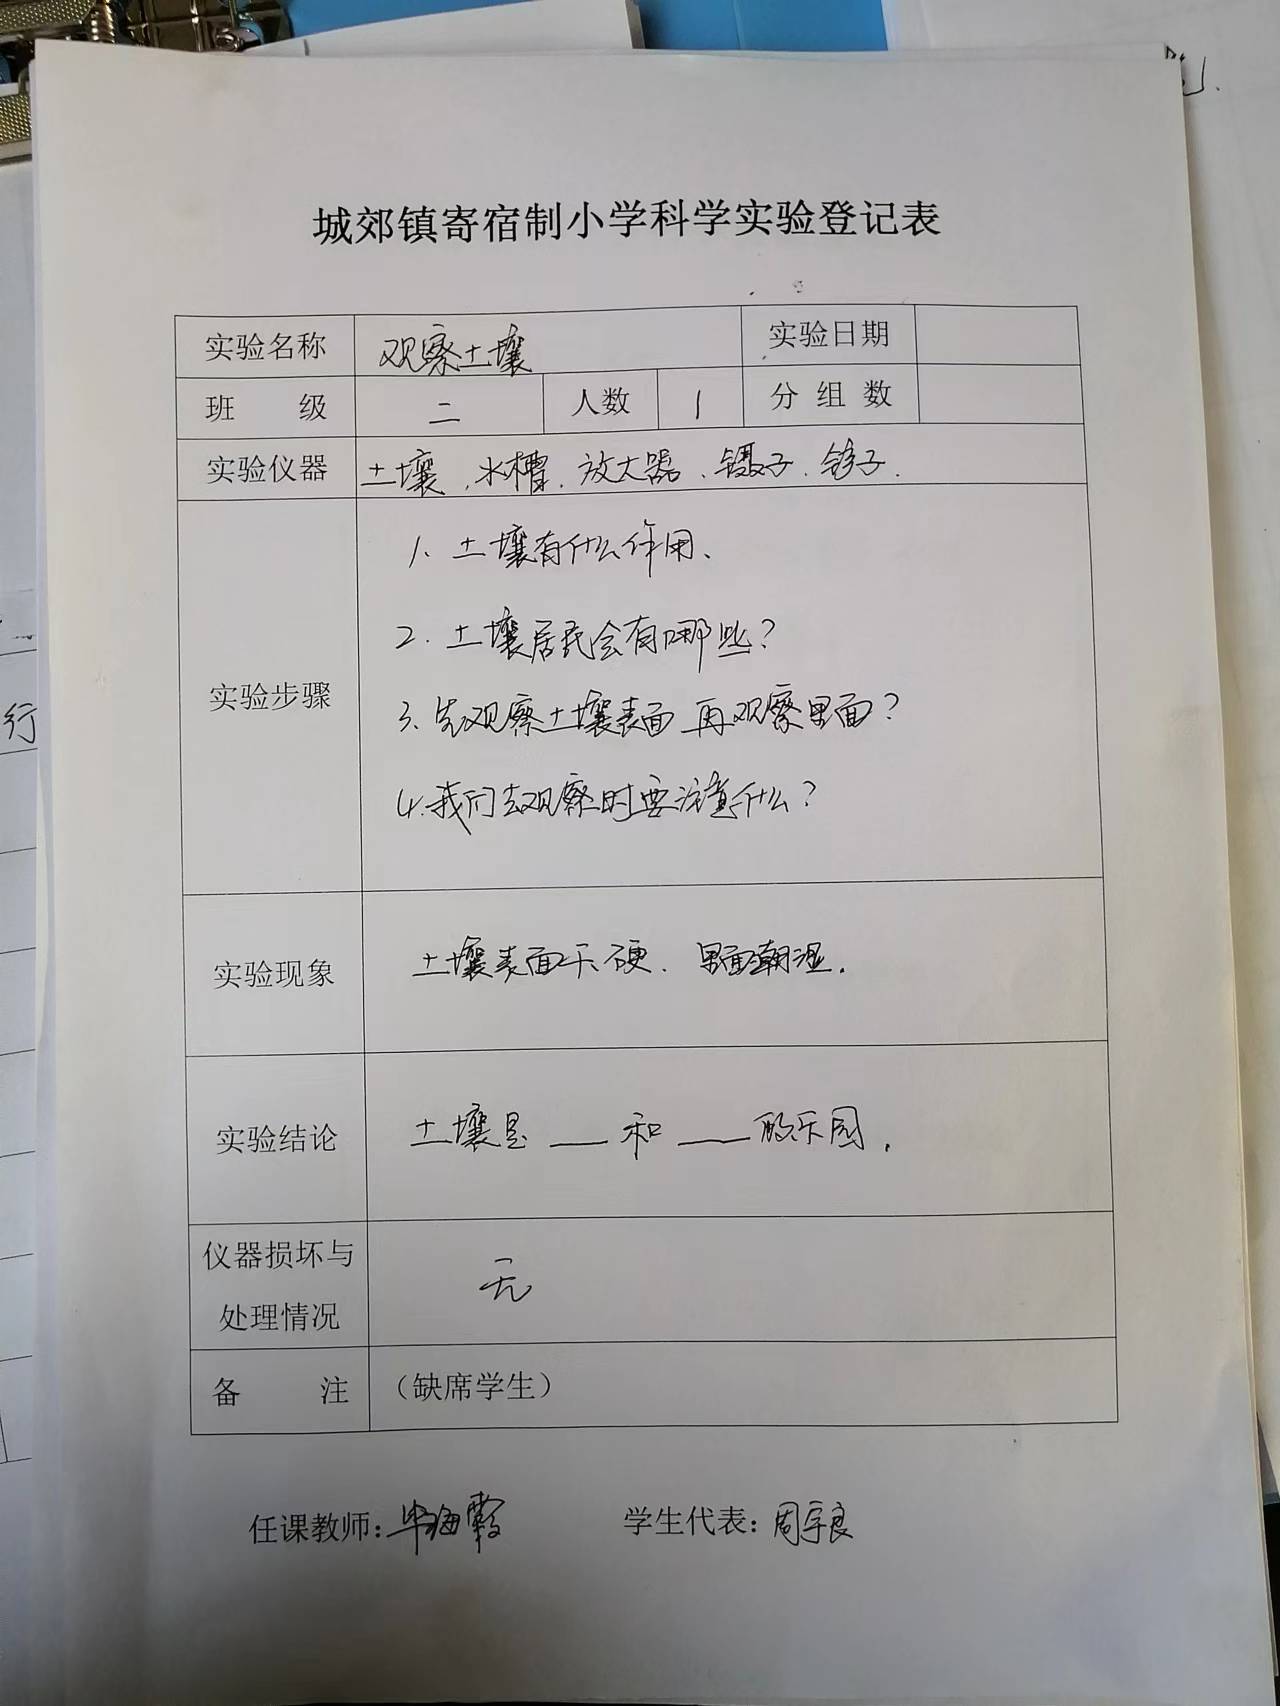 城郊镇寄宿制小学科学实验登记表
实验名称 观察土壤 实验日期
班 级 二 人数 1 分组数
实验仪器 土壤、水槽、放大器、镊子、铲子.
实验步骤
1、土壤有什么作用、
2. 土壤居民会有哪些?
3、先观察土壤表面 再观察里面?
4.我们去观察时要注意什么?
实验现象 土壤表面干、硬. 里面潮湿.
实验结论 土壤是 ___ 和 ___ 的乐园.
仪器损坏与
处理情况 无
备 注 (缺席学生)
任课教师: 毕海霞 学生代表: 周宇良
行